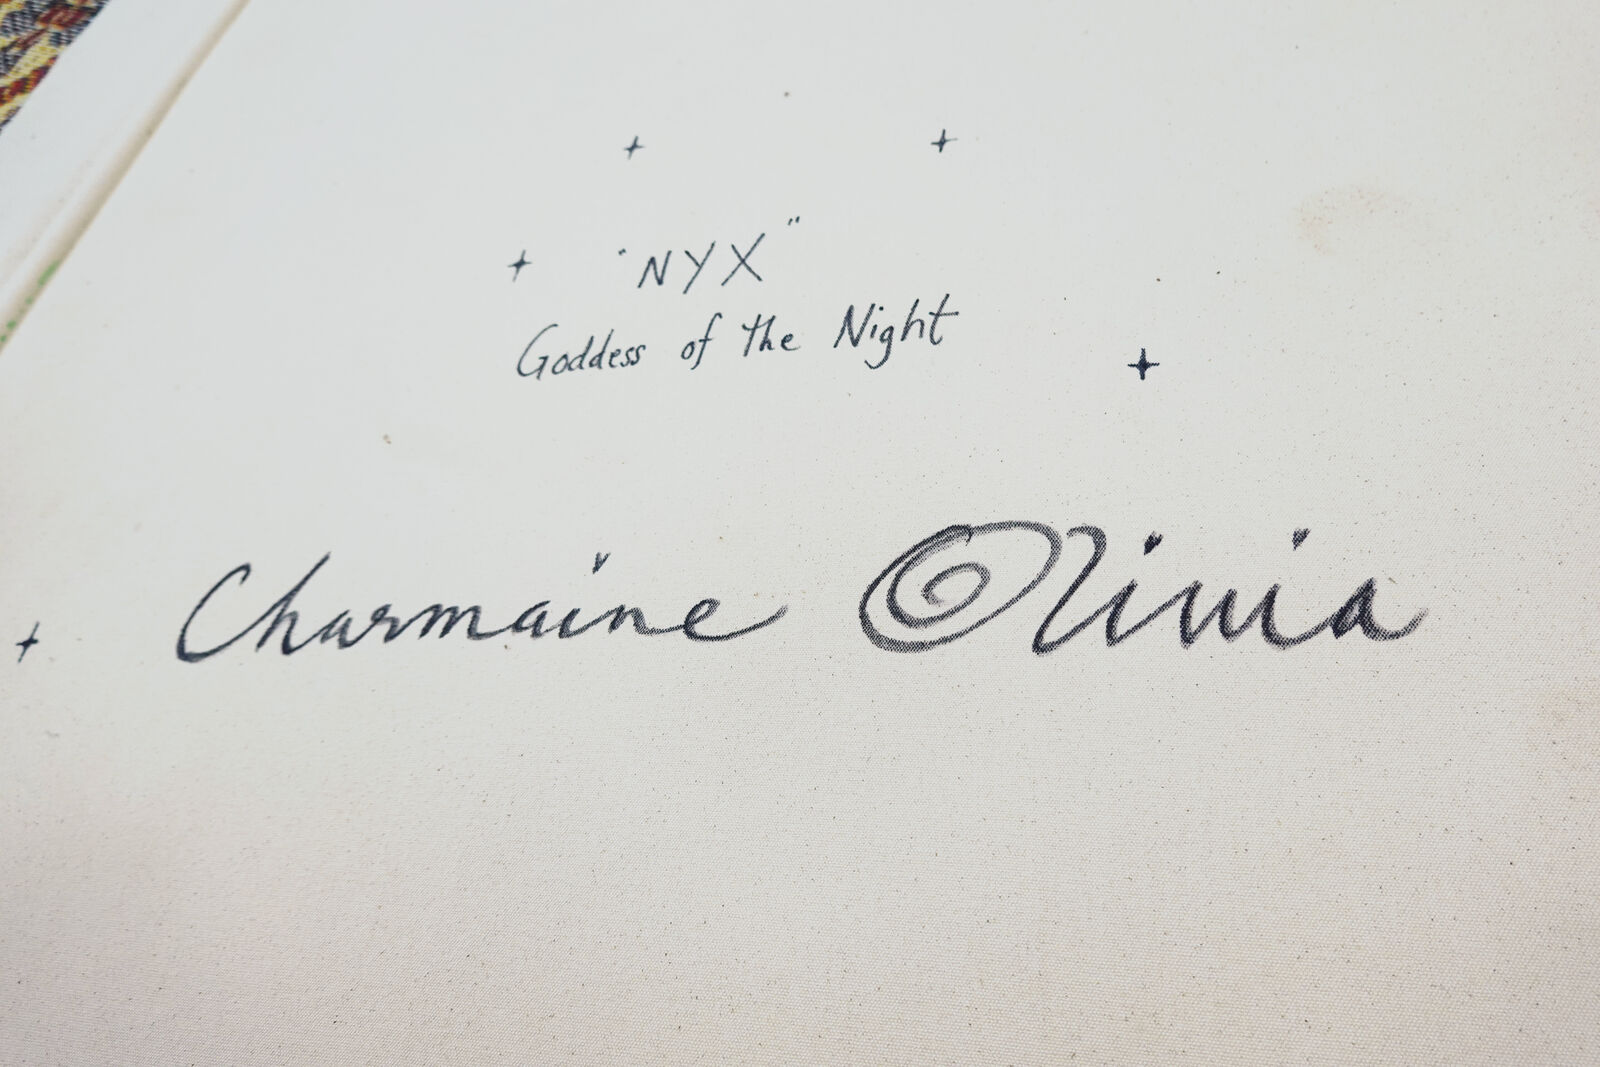 "NYX"
Goddess of the Night
Charmaine Olivia